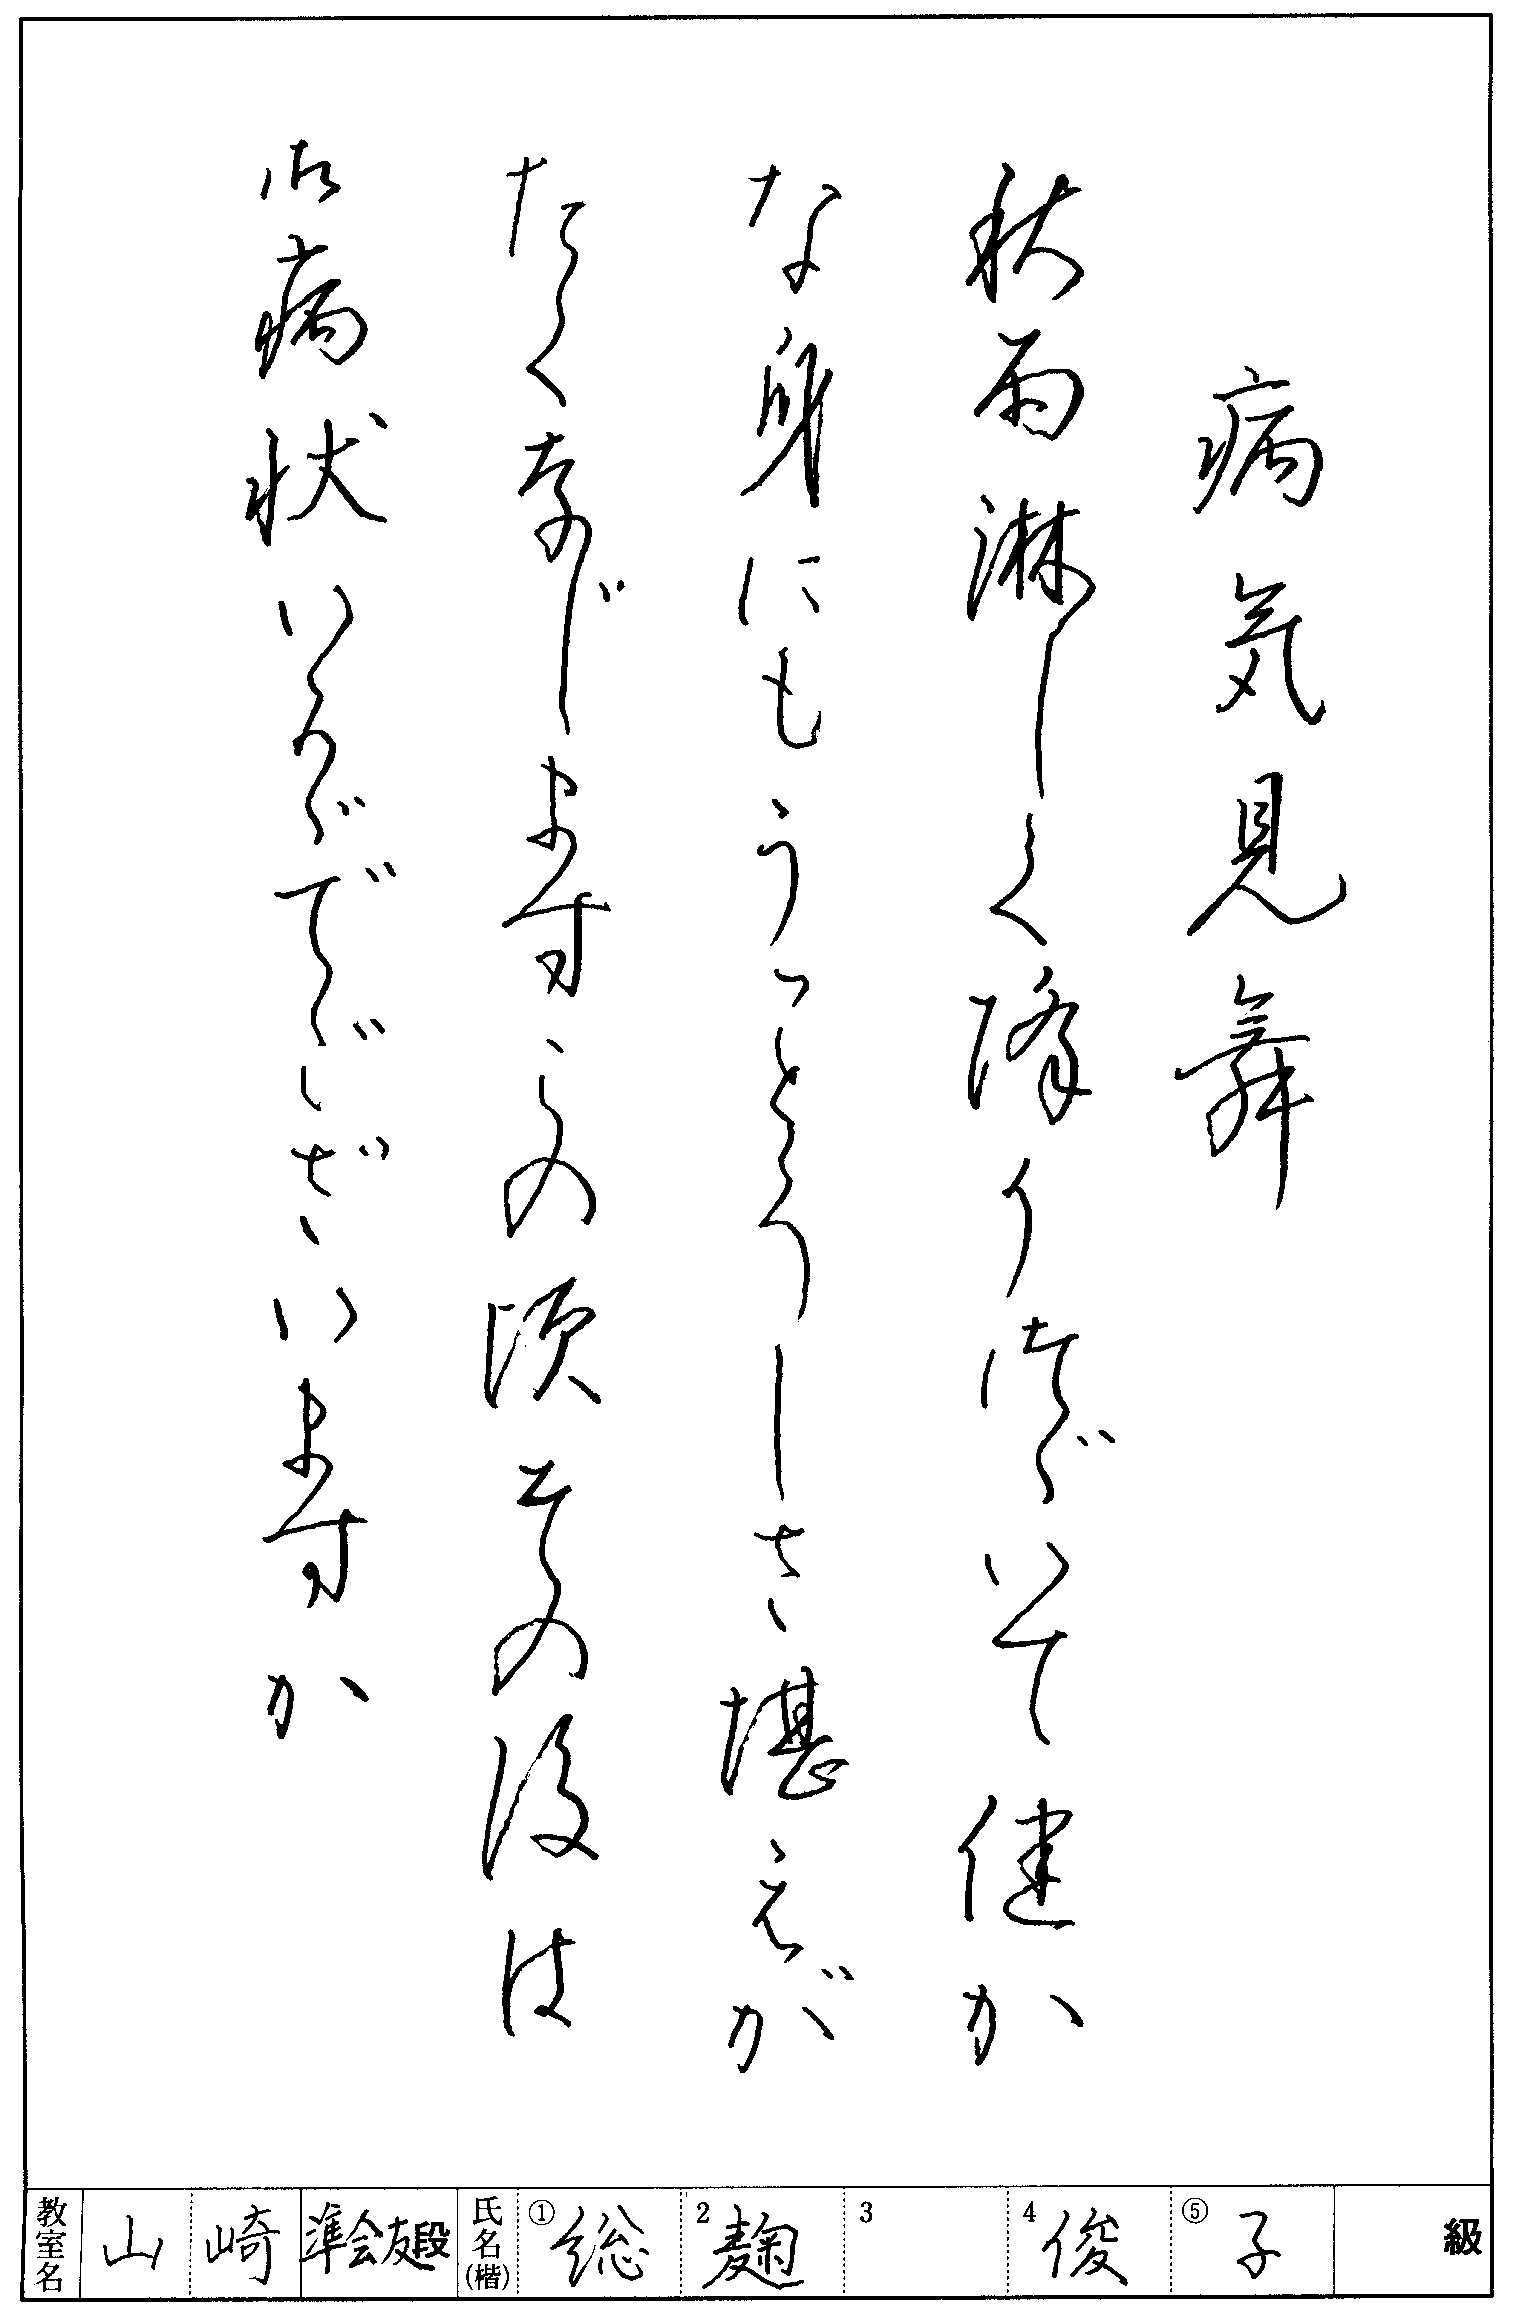 病気見舞
秋雨淋しく降りつづいて健か
な身にもうっとうしさ堪えが
たく存じますこの頃その後は
御病状いかがでございますか
教室名 山崎 準会友段 氏名(楷) ①総 2麹 3 4俊 ⑤子 級